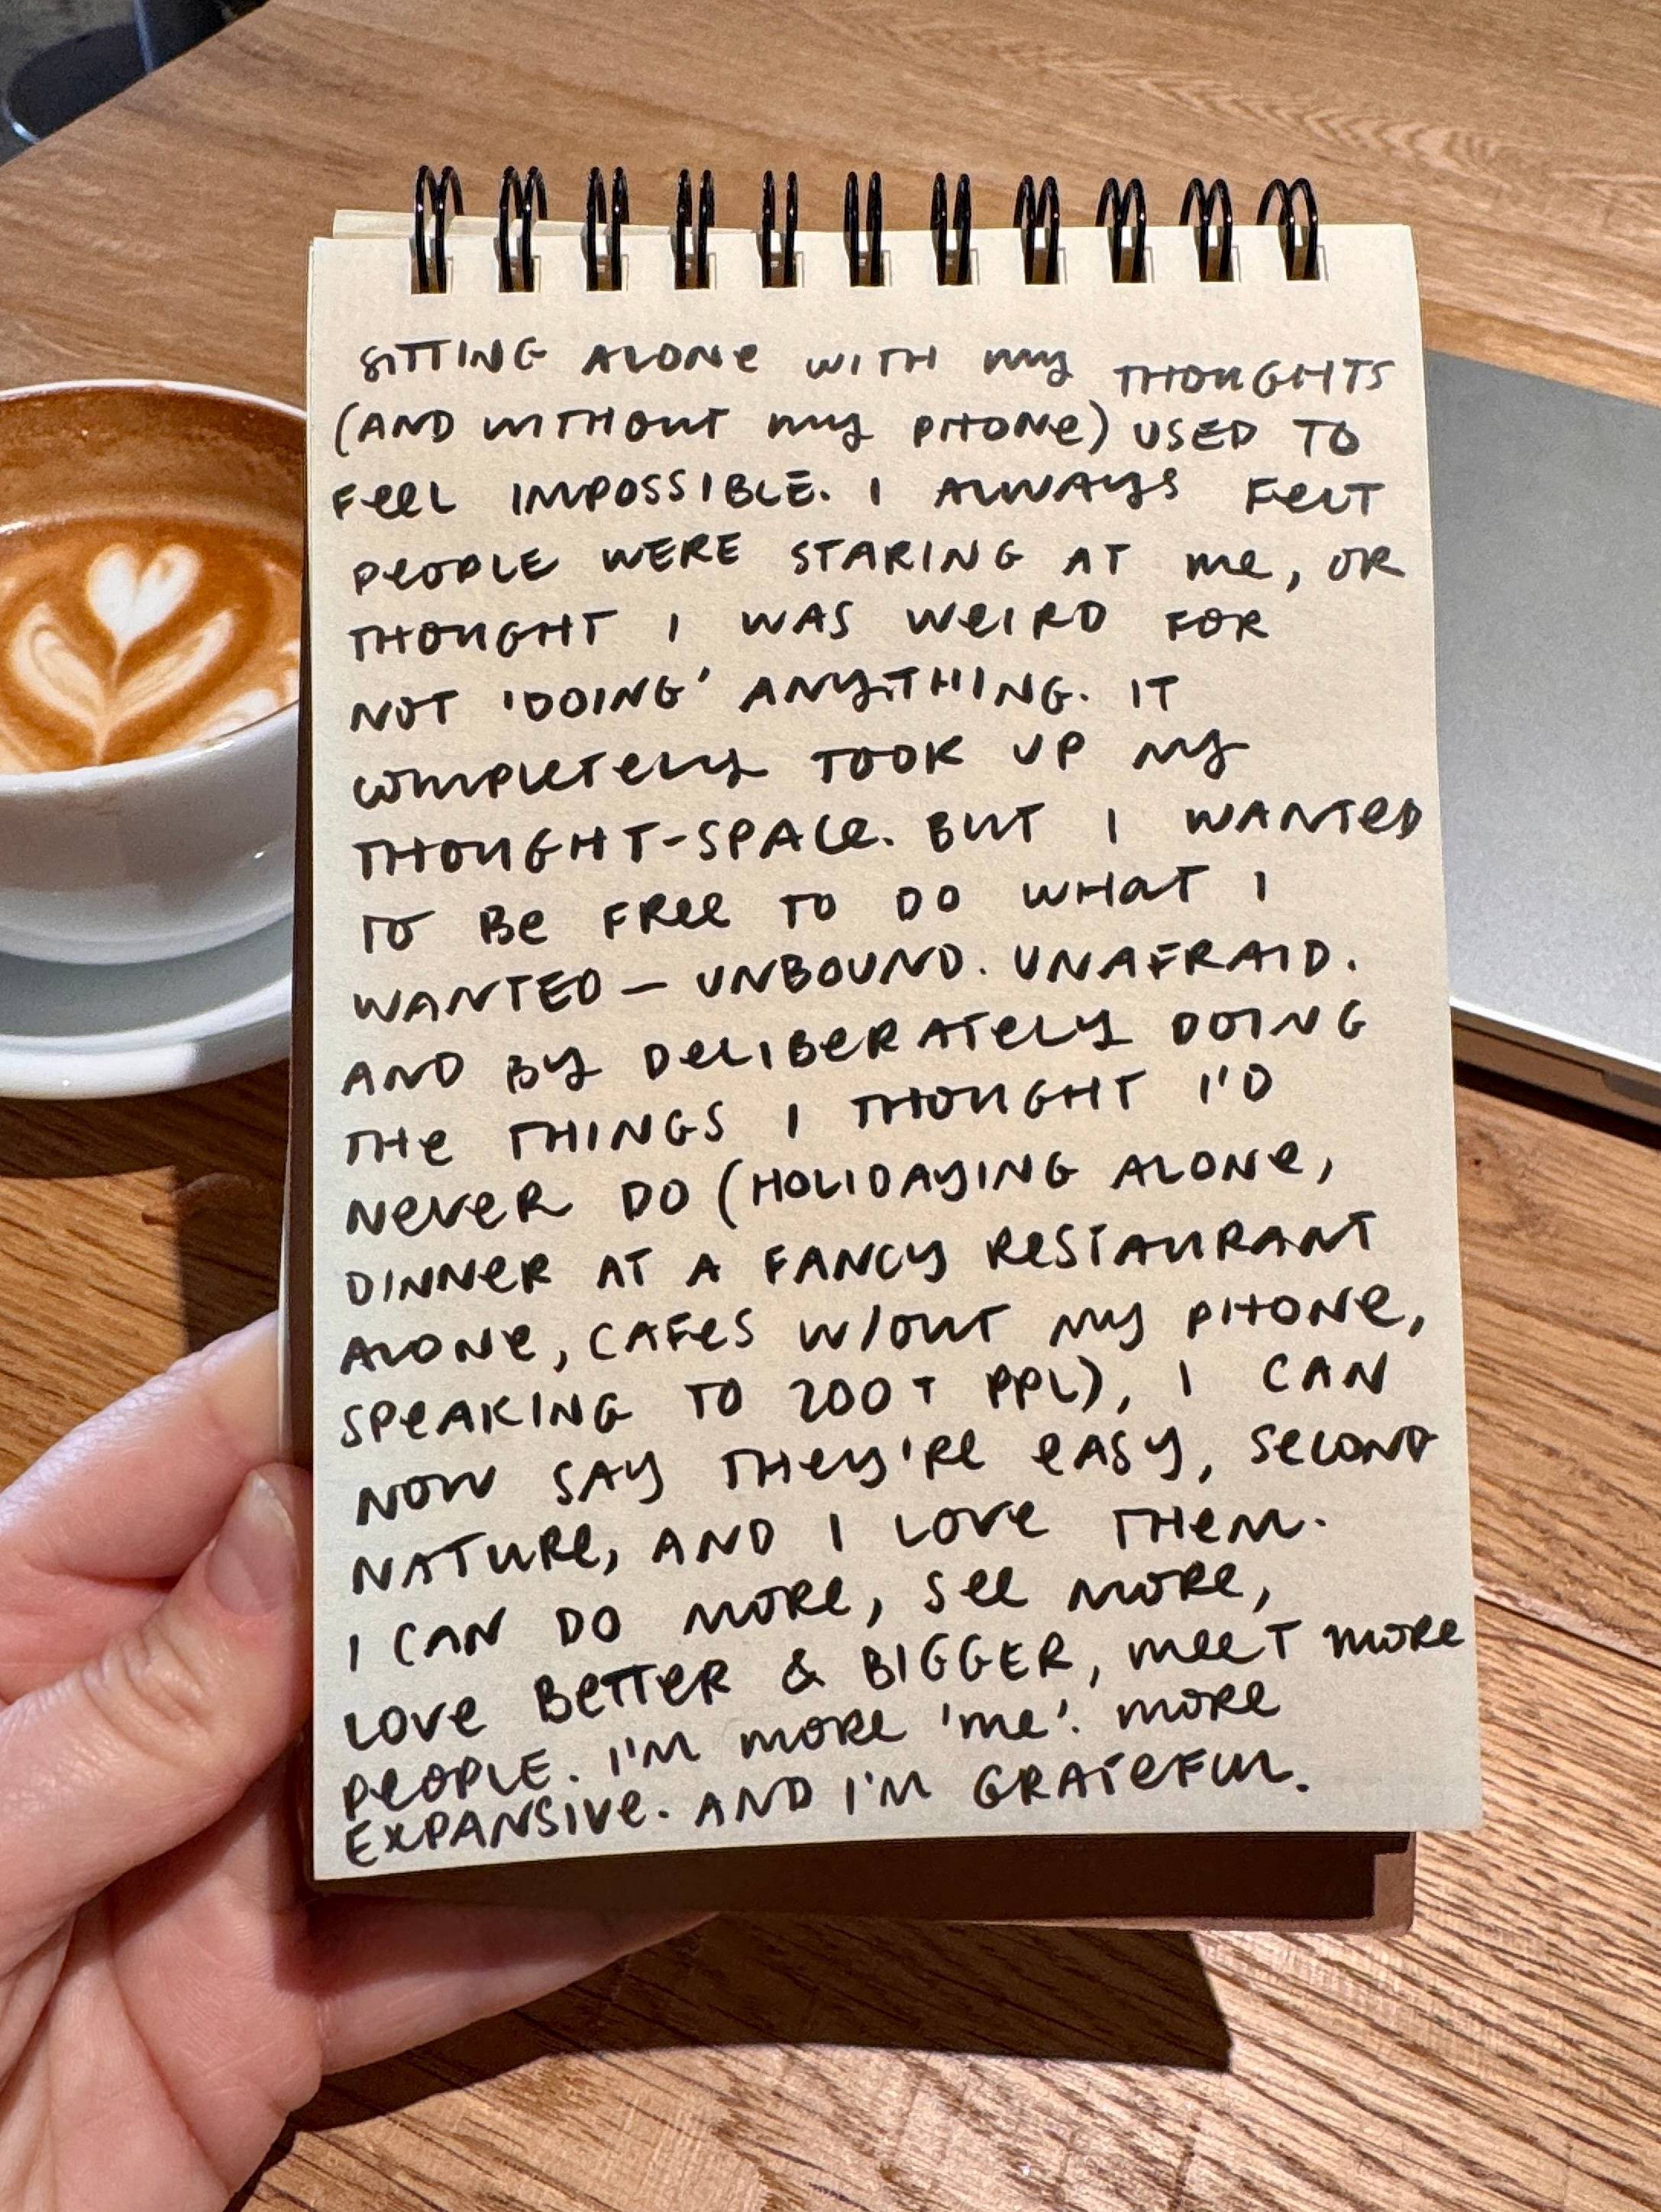 SITTING ALONE WITH MY THOUGHTS
(AND WITHOUT MY PHONE) USED TO
FEEL IMPOSSIBLE. I ALWAYS FELT
PEOPLE WERE STARING AT ME, OR
THOUGHT I WAS WEIRD FOR
NOT 'DOING' ANYTHING. IT
COMPLETELY TOOK UP MY
THOUGHT-SPACE. BUT I WANTED
TO BE FREE TO DO WHAT I
WANTED — UNBOUND. UNAFRAID.
AND BY DELIBERATELY DOING
THE THINGS I THOUGHT I'D
NEVER DO (HOLIDAYING ALONE,
DINNER AT A FANCY RESTAURANT
ALONE, CAFES W/OUT MY PHONE,
SPEAKING TO 200+ PPL), I CAN
NOW SAY THEY'RE EASY, SECOND
NATURE, AND I LOVE THEM.
I CAN DO MORE, SEE MORE,
LOVE BETTER & BIGGER, MEET MORE
PEOPLE. I'M MORE 'ME'. MORE
EXPANSIVE. AND I'M GRATEFUL.